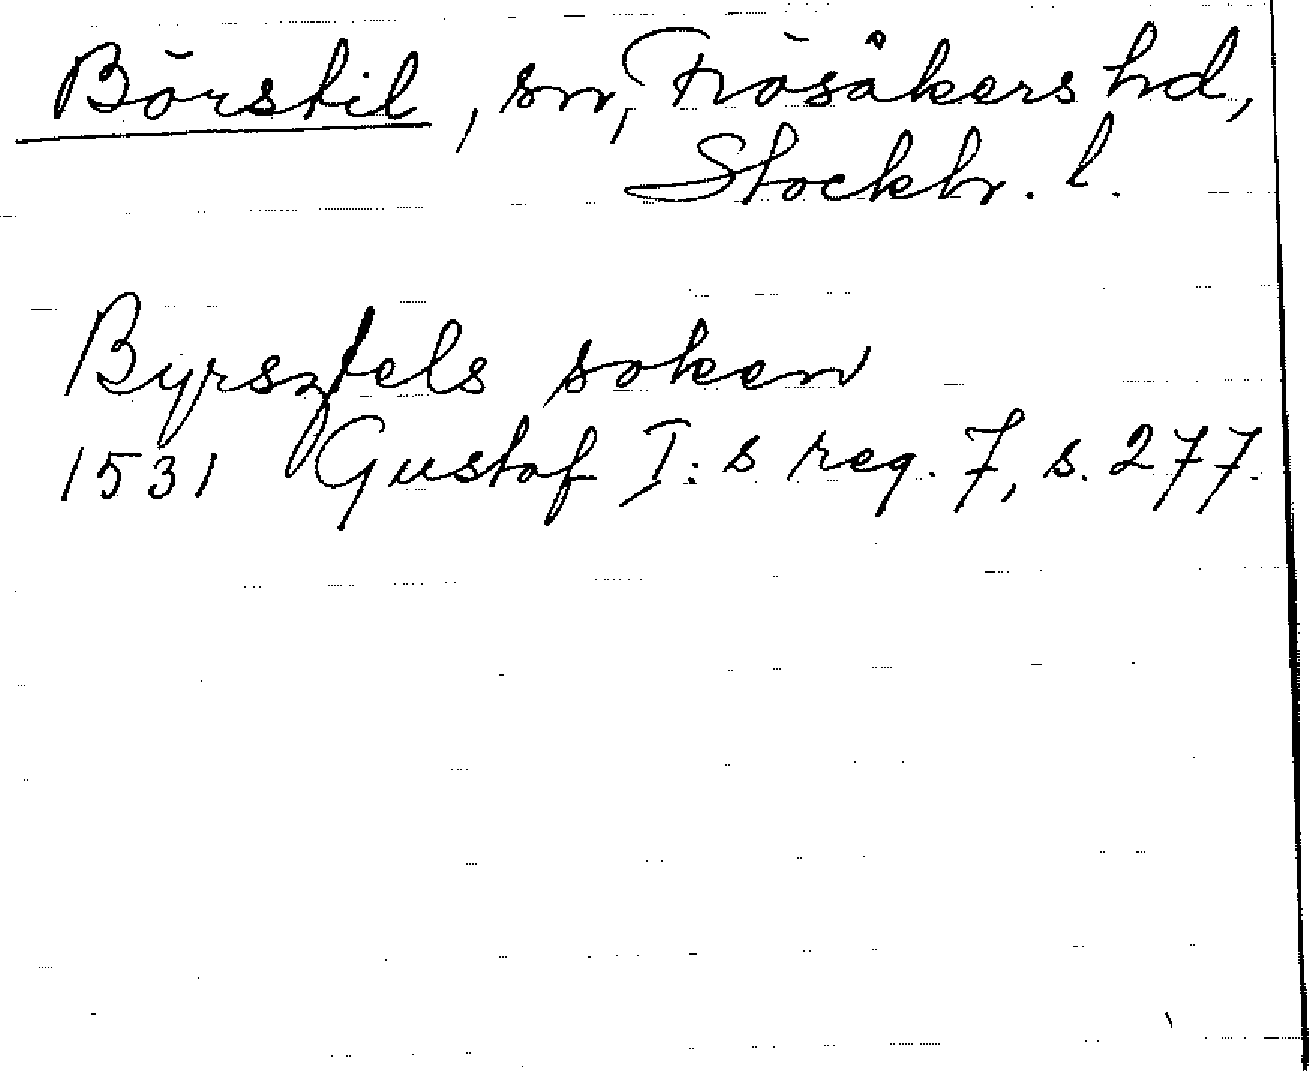 Börstil, sn, Frösåkers hd,
Stockh. l.
Byrsztels soken
1531 Gustaf I:s reg. 7, s. 277.